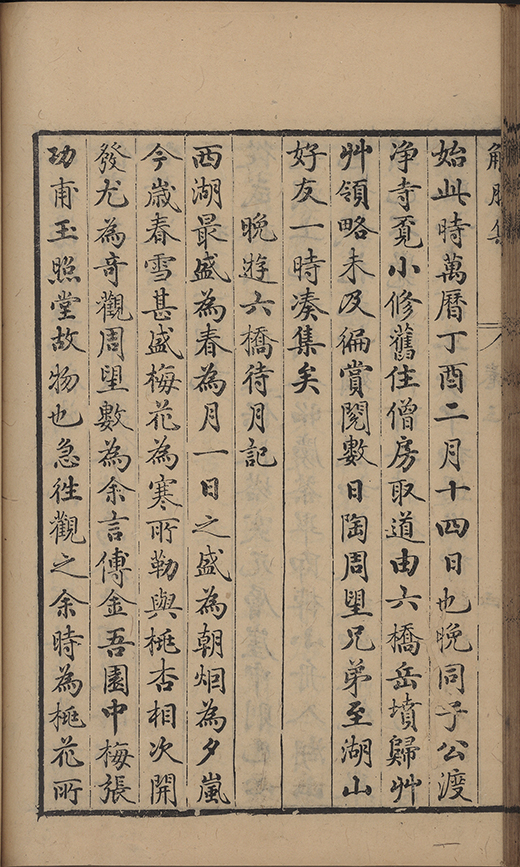 解脫集
始此時萬曆丁酉二月十四日也晚同子公渡
净寺覔小修舊住僧房取道由六橋岳墳歸艸
艸領略未及徧賞閱數日陶周朢兄弟至湖山
好友一時凑集矣
晚遊六橋待月記
西湖最盛為春為月一日之盛為朝烟為夕嵐
今歳春雪甚盛梅花為寒所勒與桃杏相次開
發尤為奇觀周朢數為余言傅金吾園中梅張
功甫玉照堂故物也急徃觀之余時為桃花所